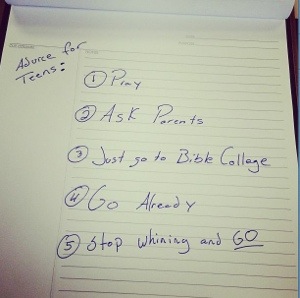 Advice for
Teens:
① Pray
② Ask Parents
③ Just go to Bible College
④ Go Already
⑤ Stop whining and GO